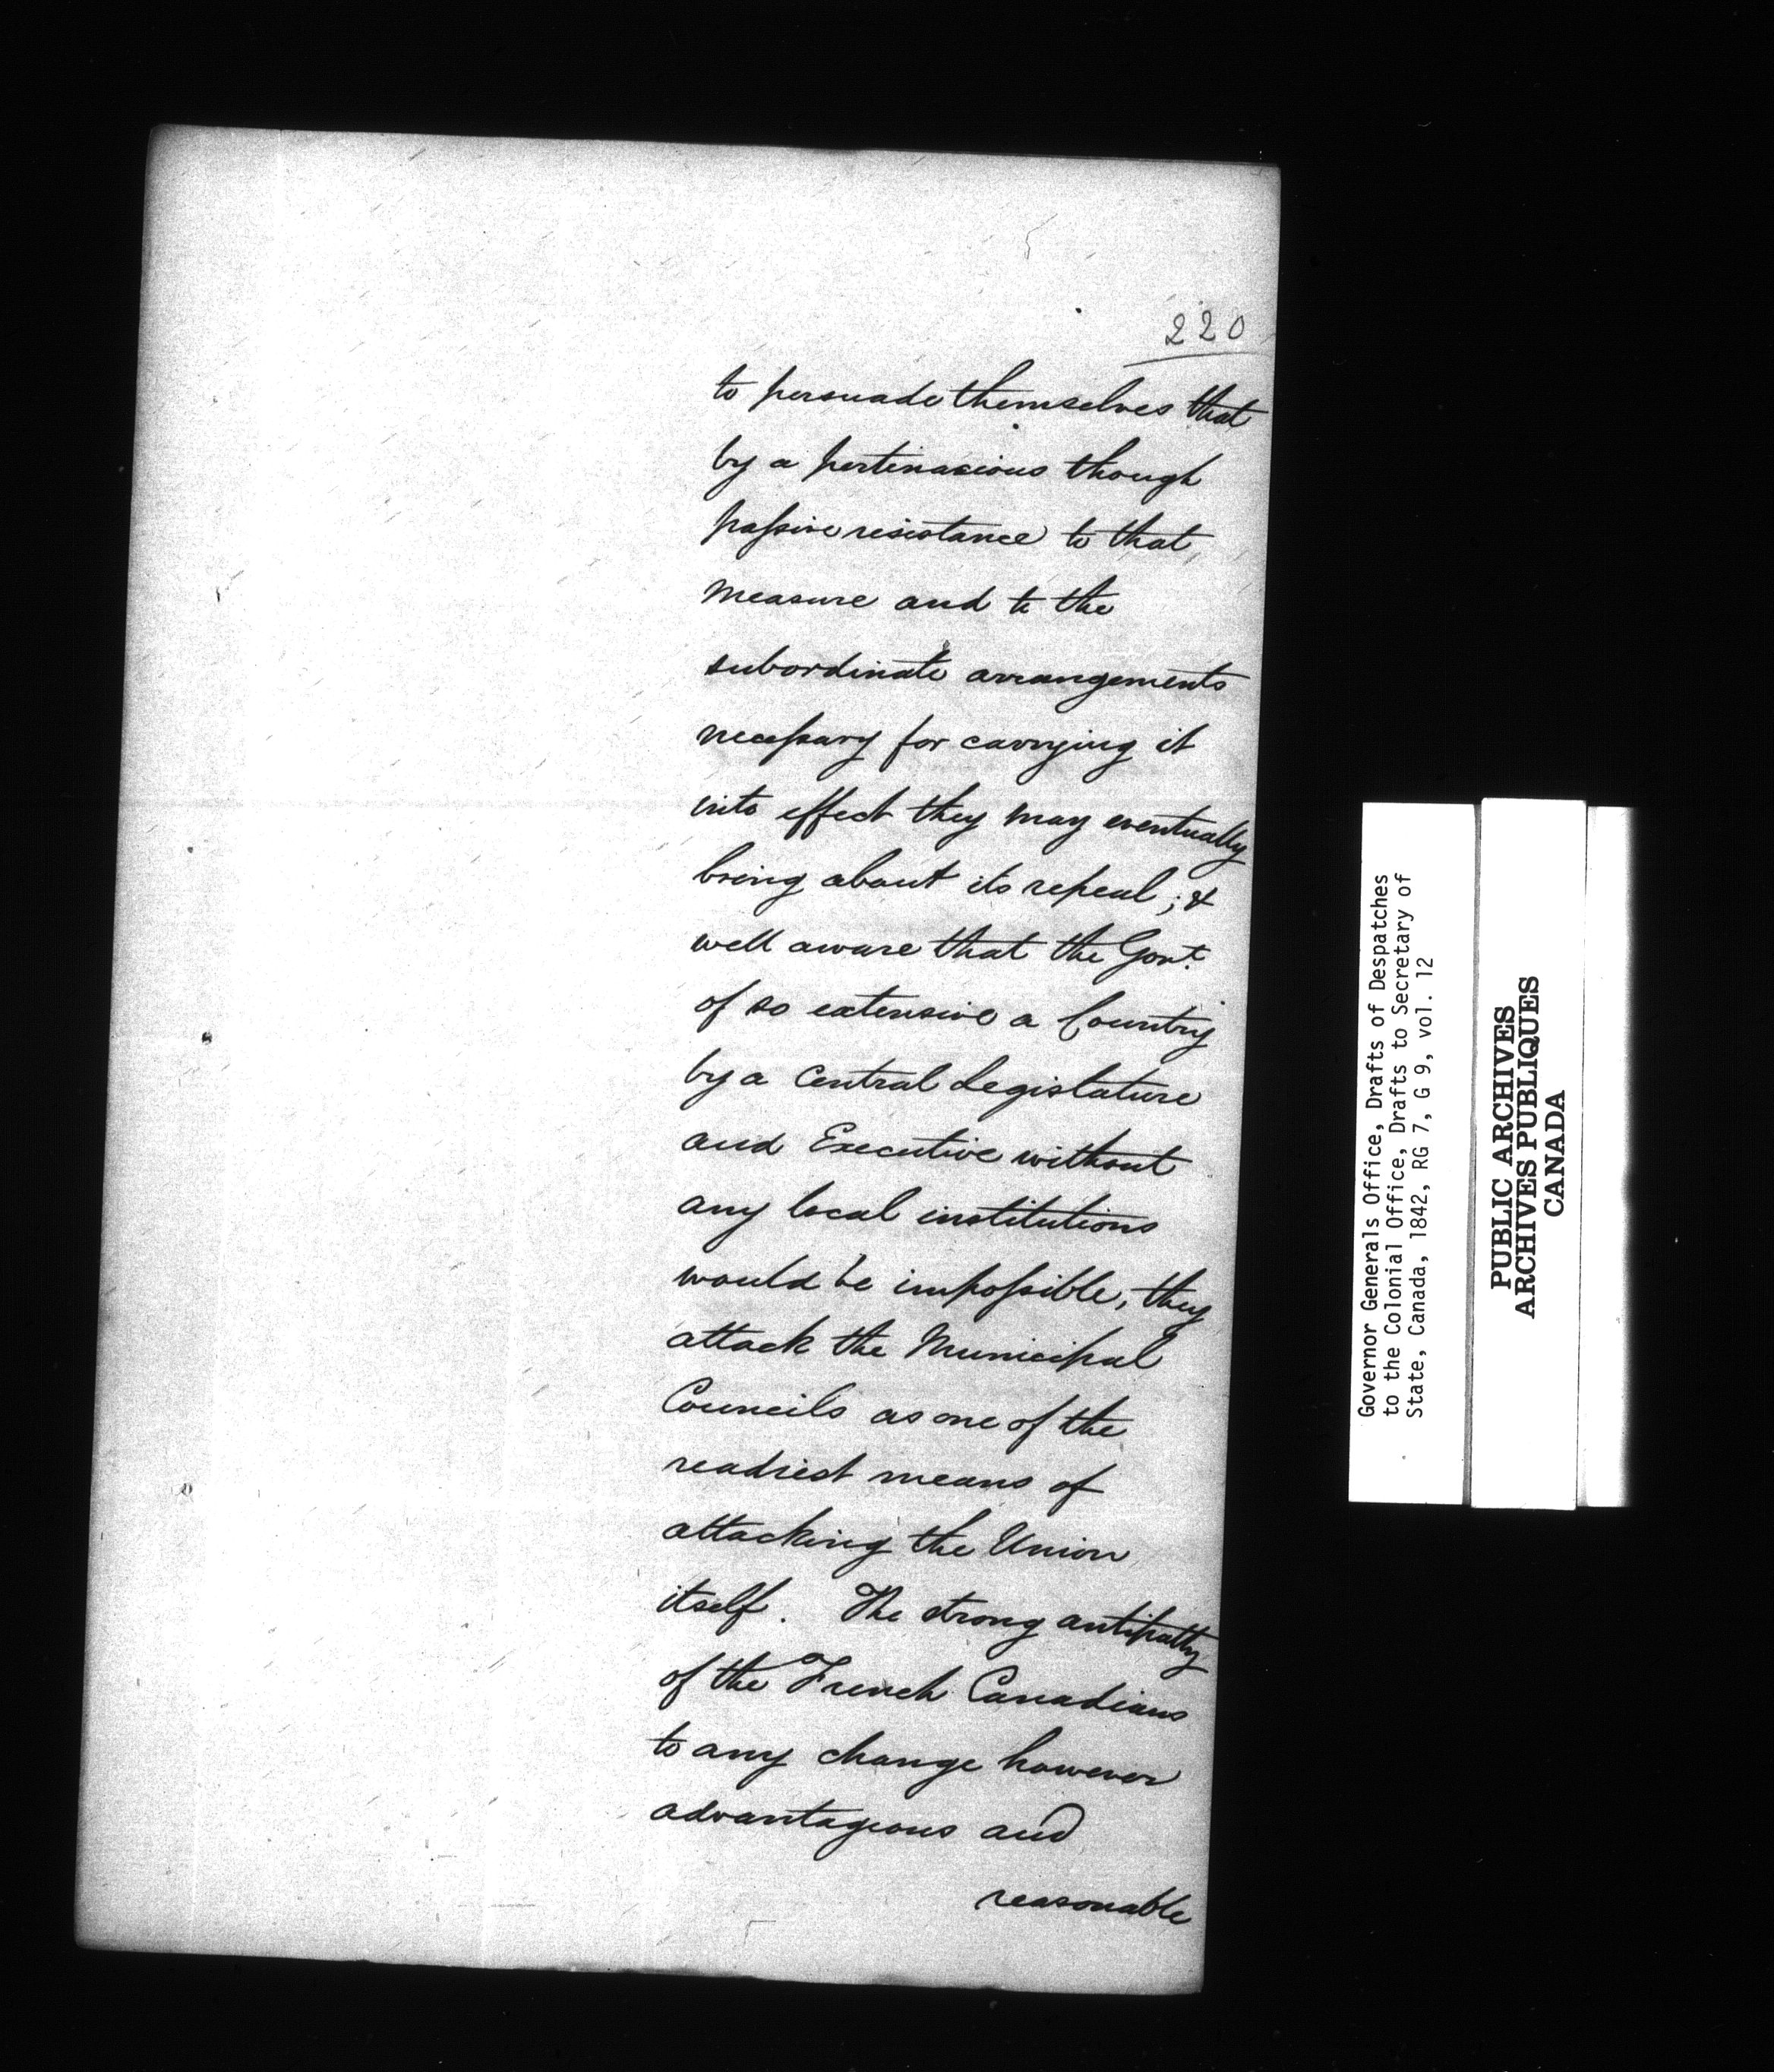 220
to persuade themselves that
by a pertinacious though
passive resistance to that
measure and to the
subordinate arrangements
necessary for carrying it
into effect they may eventually
bring about its repeal; &
well aware that the Govt.
of so extensive a Country
by a Central Legislature
and Executive without
any local institutions
would be impossible, they
attack the Municipal
Councils as one of the
readiest means of
attacking the Union
itself. The strong antipathy
of the French Canadians
to any change however
advantageous and
reasonable
Governor Generals Office, Drafts of Despatches
to the Colonial Office, Drafts to Secretary of
State, Canada, 1842, RG 7, G 9, vol. 12
PUBLIC ARCHIVES
ARCHIVES PUBLIQUES
CANADA